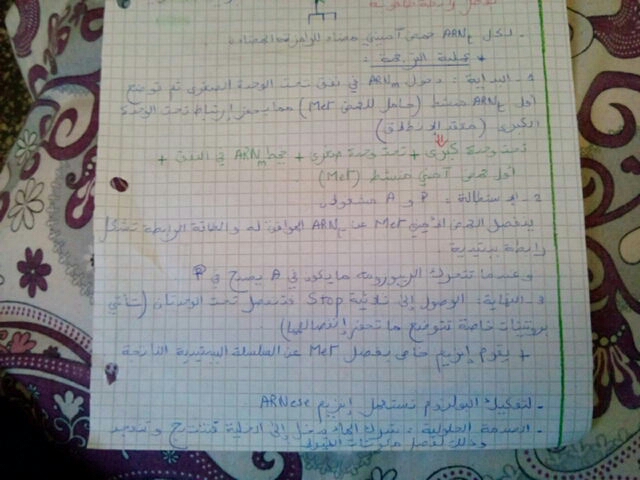 - لكل ARNt حمض أميني مضاد للرامزة المضادة
* عملية الترجمة :
1 - البداية : دخول ARNm في نفق تحت الوحدة الصغرى ثم توضع
أول ARNt منشط (حامل للحمض Met) مما يحفز إرتباط تحت الوحدة
الكبرى (معقد الإنطلاق)
تحت وحدة كبرى + تحت وحدة صغرى + خيط ARNm في النفق +
أول حمض أميني منشط (Met)
2 - الاستطالة : P و A مشغولان
ينفصل الحمض الأميني Met عن ARNt الموافق له و الطاقة الرابطة تشكل
رابطة ببتيدية
و عندما تتحرك الريبوزومة ما يكون في A يصبح في P
3 - النهاية : الوصول إلى ثلاثية Stop فتنفصل تحت الوحدتان (تأتي
بروتينات خاصة تتوضع ما تحفز إنفصالها)
+ يقوم إنزيم خاص بفصل Met عن السلسلة الببتيدية الناتجة
- لتفكيك البوليزوم تستعمل إنزيم ARNase
- الصدمة الحلولية : نترك الماء يدخل إلى الخلية فتنتبج و تنفجر
وذلك لفصل مكونات الخلية